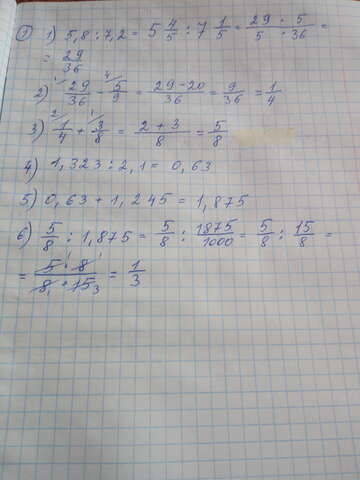 ① 1) 5,8 : 7,2 = 5 4/5 : 7 1/5 = 29 · 5 / 5 · 36 =
= 29/36
2) 29/36 - 5/9 = 29-20/36 = 9/36 = 1/4
3) 1/4 + 3/8 = 2+3/8 = 5/8
4) 1,323 : 2,1 = 0,63
5) 0,63 + 1,245 = 1,875
6) 5/8 : 1,875 = 5/8 : 1875/1000 = 5/8 : 15/8 =
= 5 · 8 / 8 · 15 = 1/3